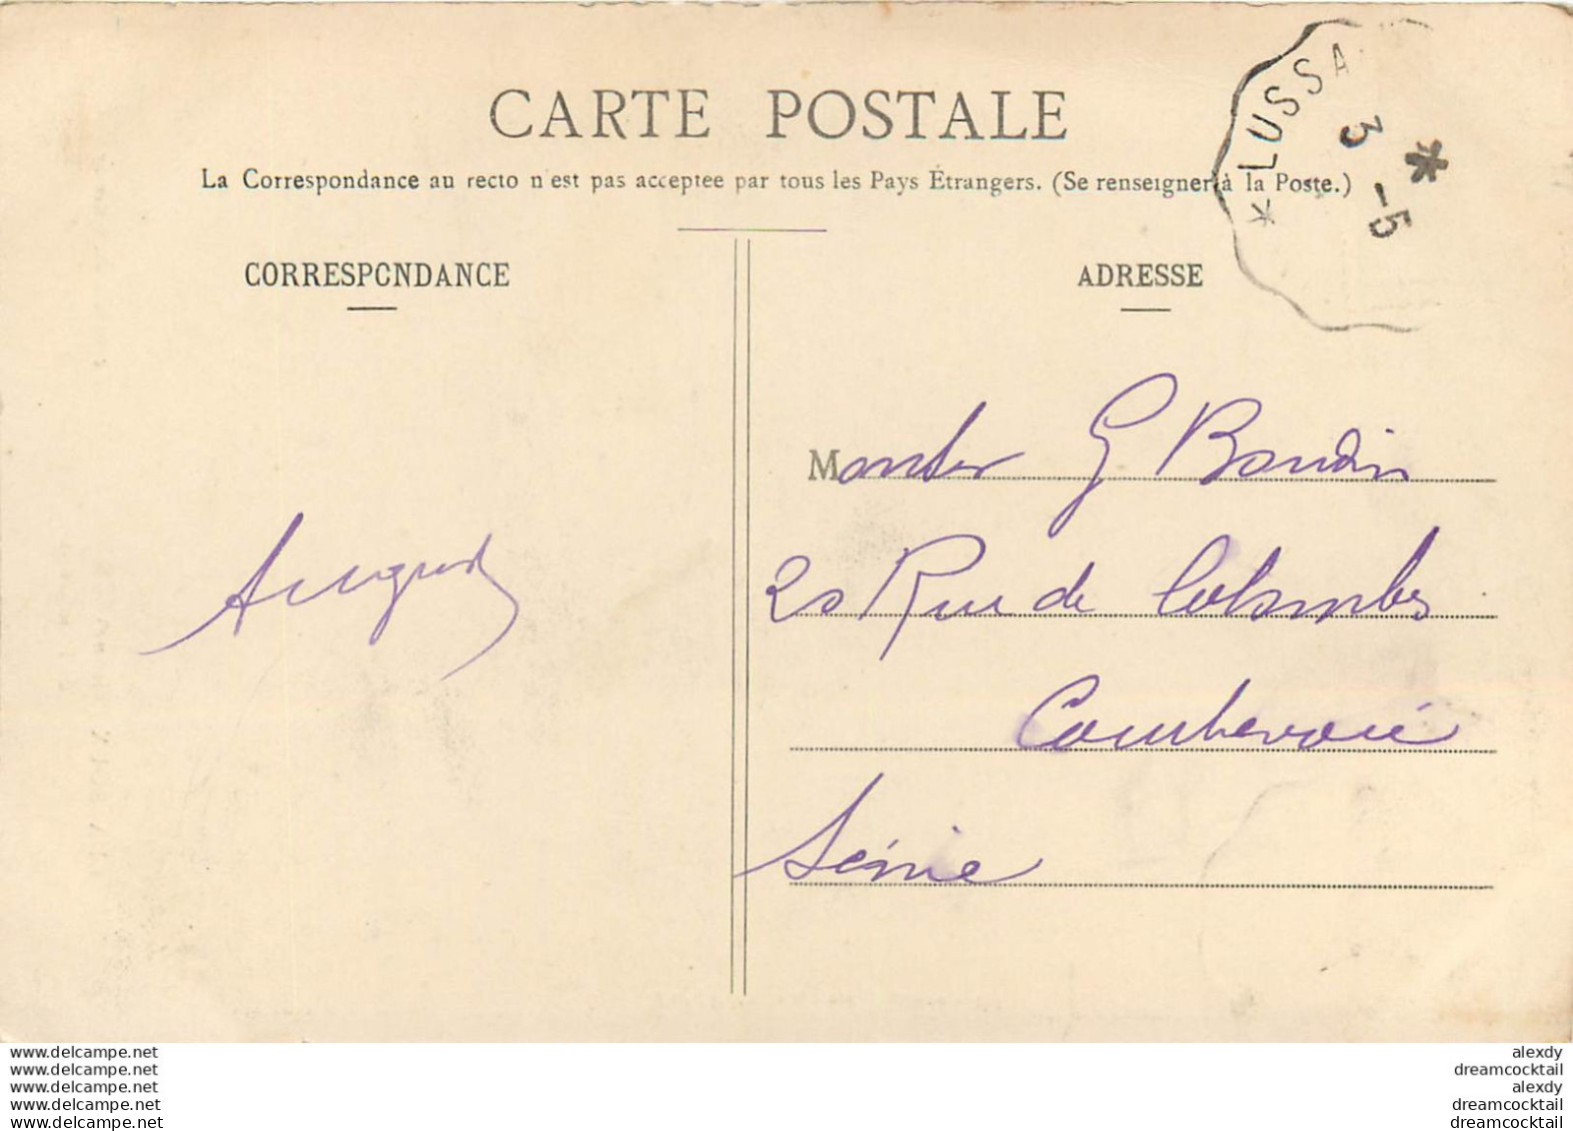 CARTE POSTALE
La Correspondance au recto n'est pas acceptee par tous les Pays Étrangers. (Se renseigner à la Poste.)
* LUSSA
3 -5
*
CORRESPONDANCE
ADRESSE
Monsieur G Baudin
20 Rue de Colombes
Courbevoie
Seine
August
www.delcampe.net
www.delcampe.net
www.delcampe.net
www.delcampe.net
www.delcampe.net
alexdy
dreamcocktail
alexdy
dreamcocktail
dreamcocktail